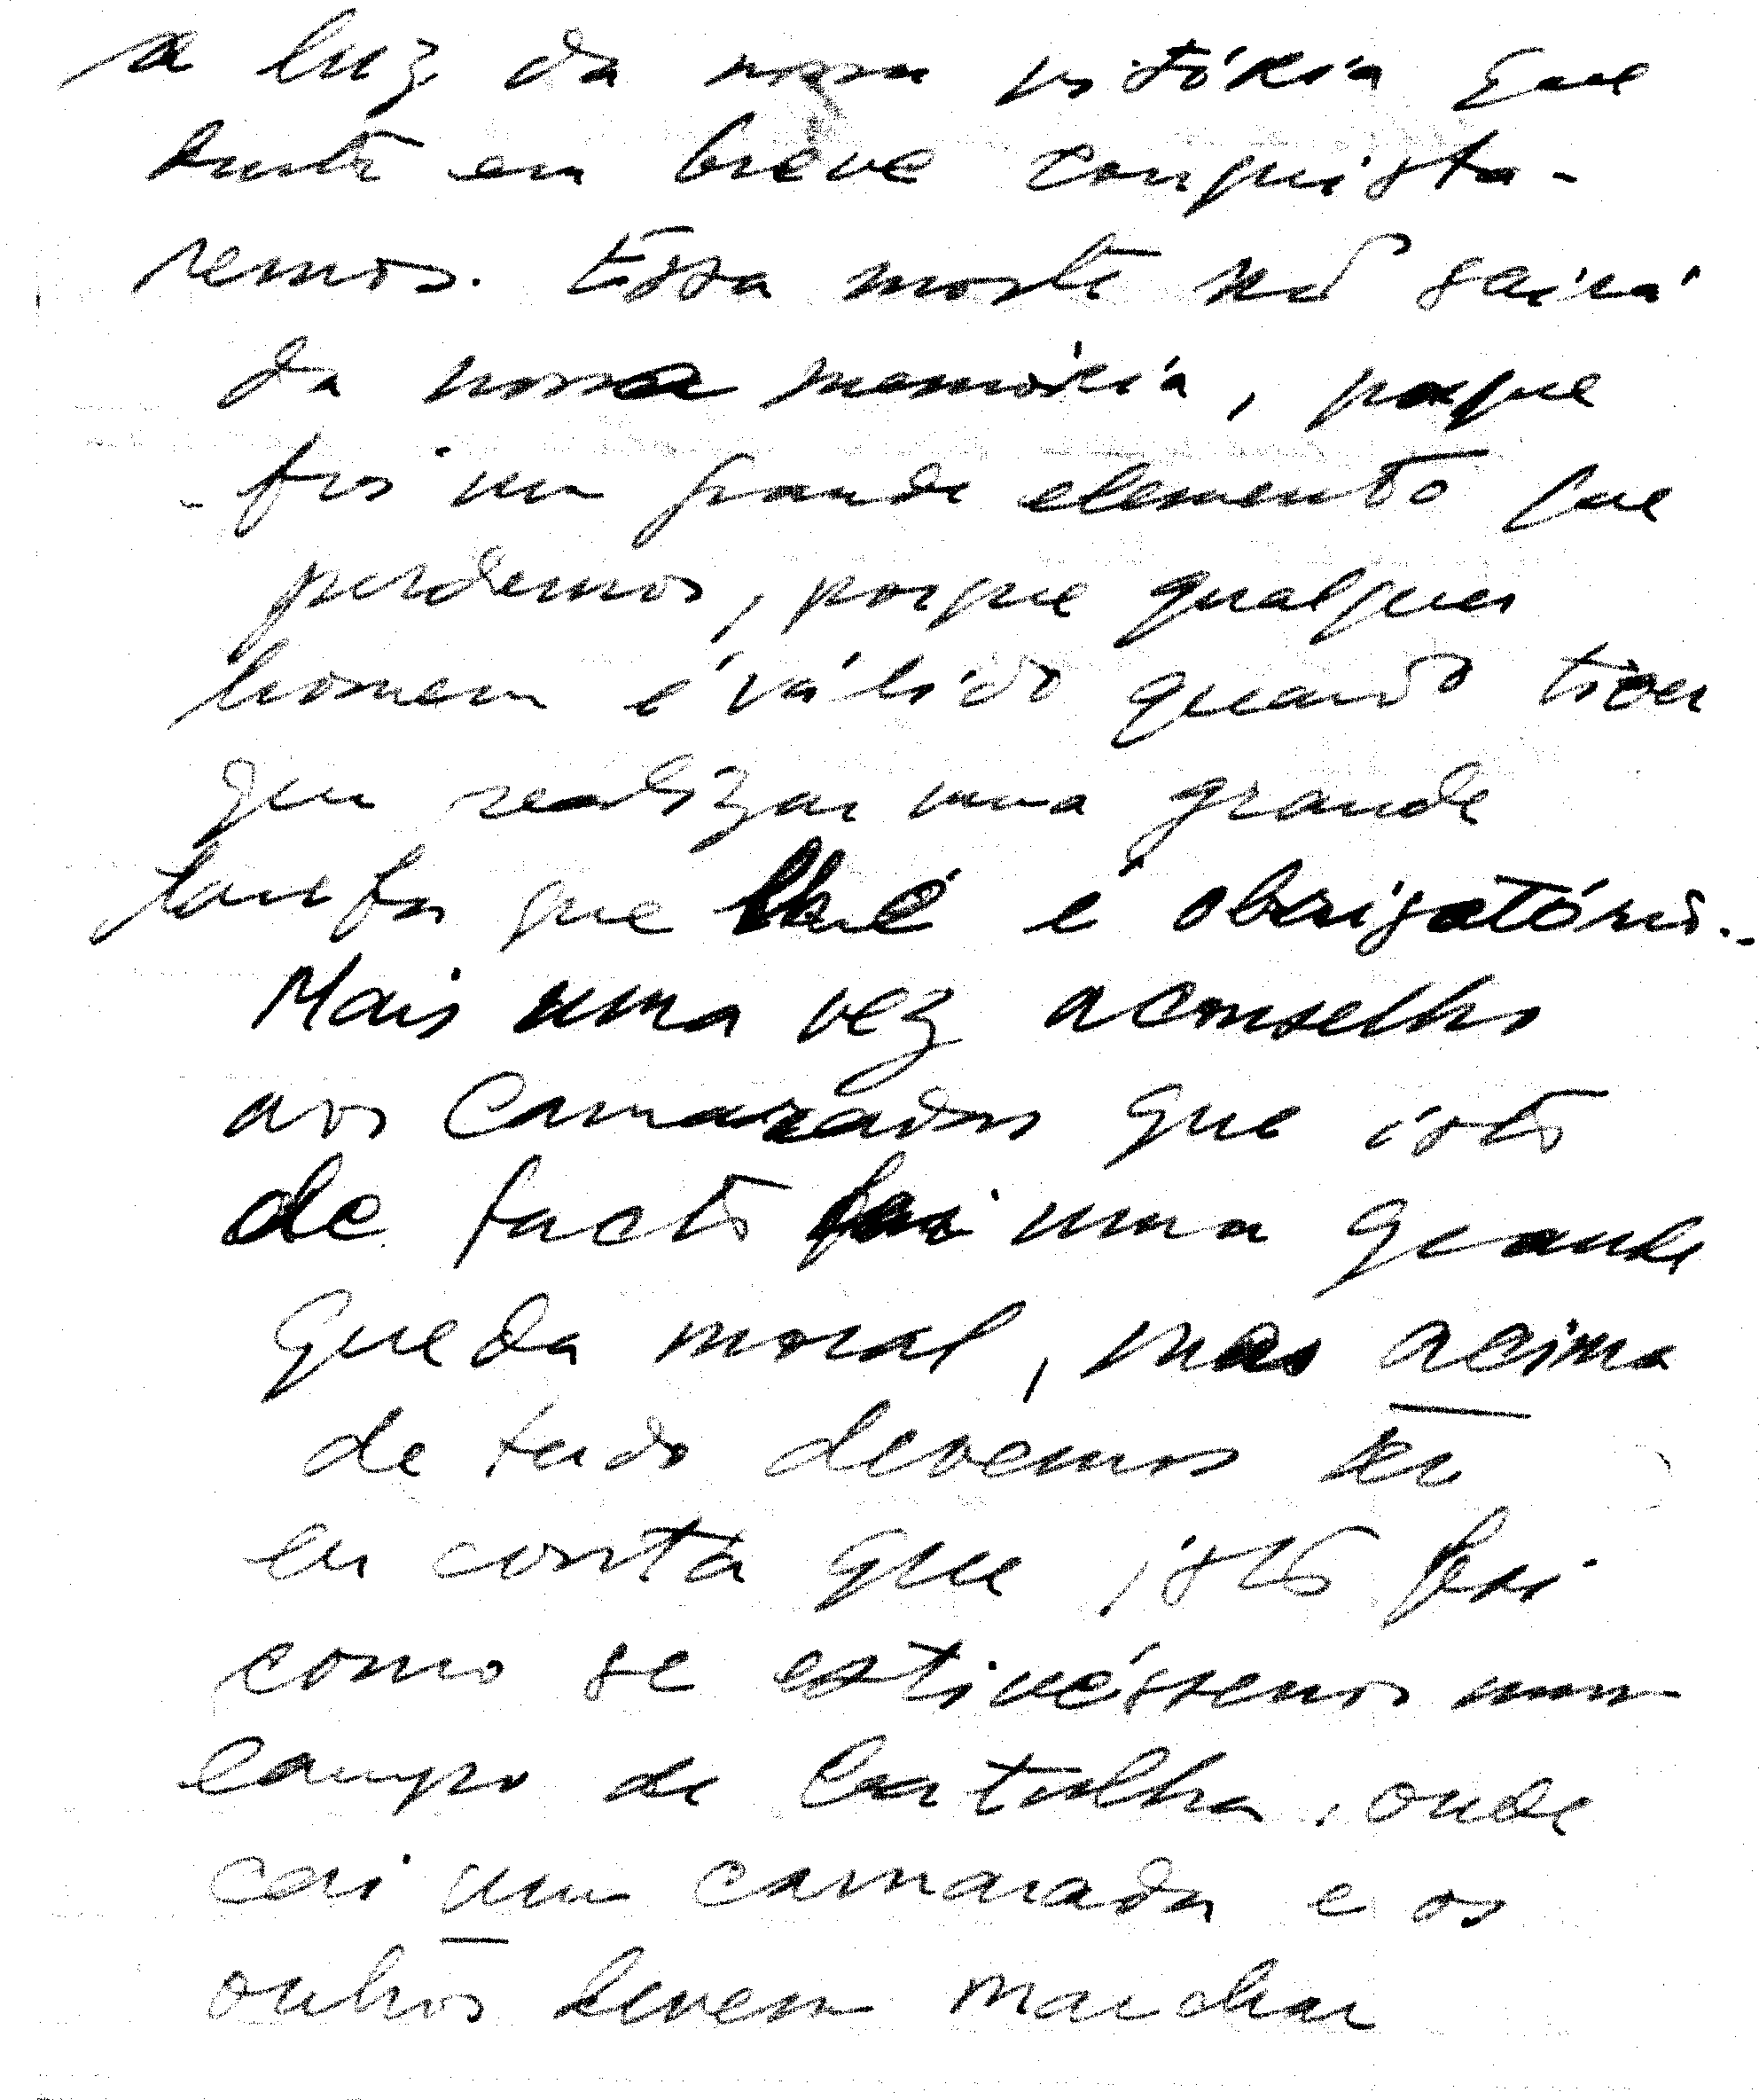 a luz da nossa vitória que
dentro em breve conquista-
remos. Essa morte não sairá
da nossa memória, porque
foi um grande elemento que
perdemos, porque qualquer
homem é válido quando tiver
que realizar uma grande
tarefa que lhe é obrigatório.
Mais uma vez aconselho
aos Camaradas que isto
de facto foi uma grande
queda moral, mas acima
de tudo devemos ter
em conta que isto foi
como se estivéssemos num
campo de batalha, onde
cai um camarada e os
outros devem marchar